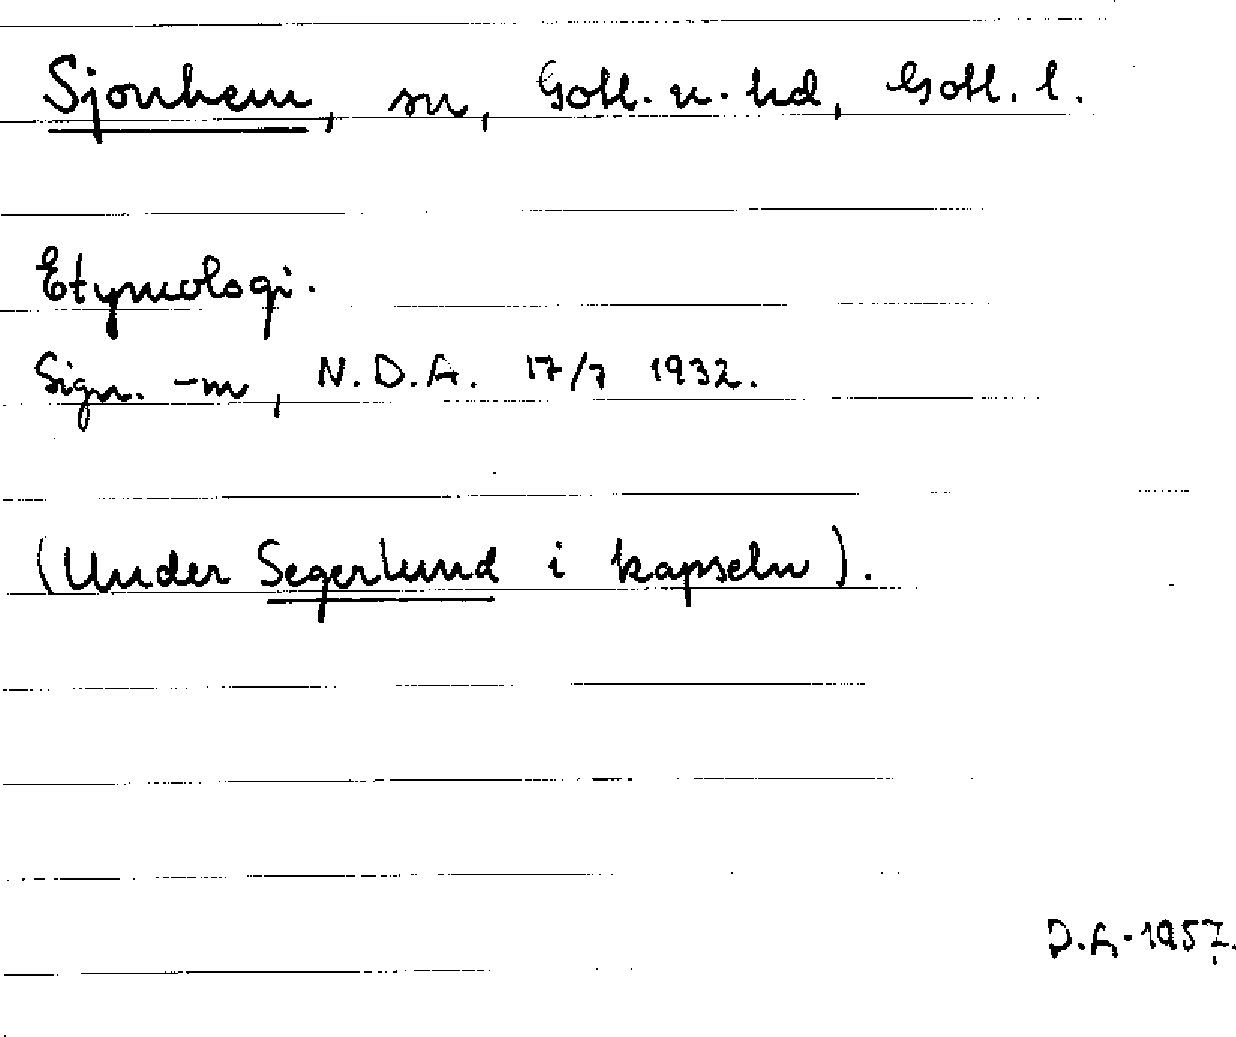 Sjonhem, sn, Gotl. n. hd, Gotl. l.
Etymologi.
Sign. -m, N.D.A. 17/7 1932.
(Under Segerlund i kapseln).
D.A. 1957.